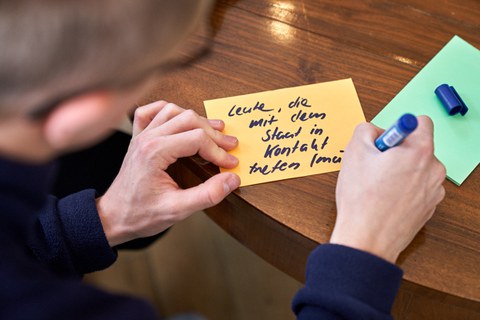 Leute, die
mit dem
Staat in
Kontakt
treten